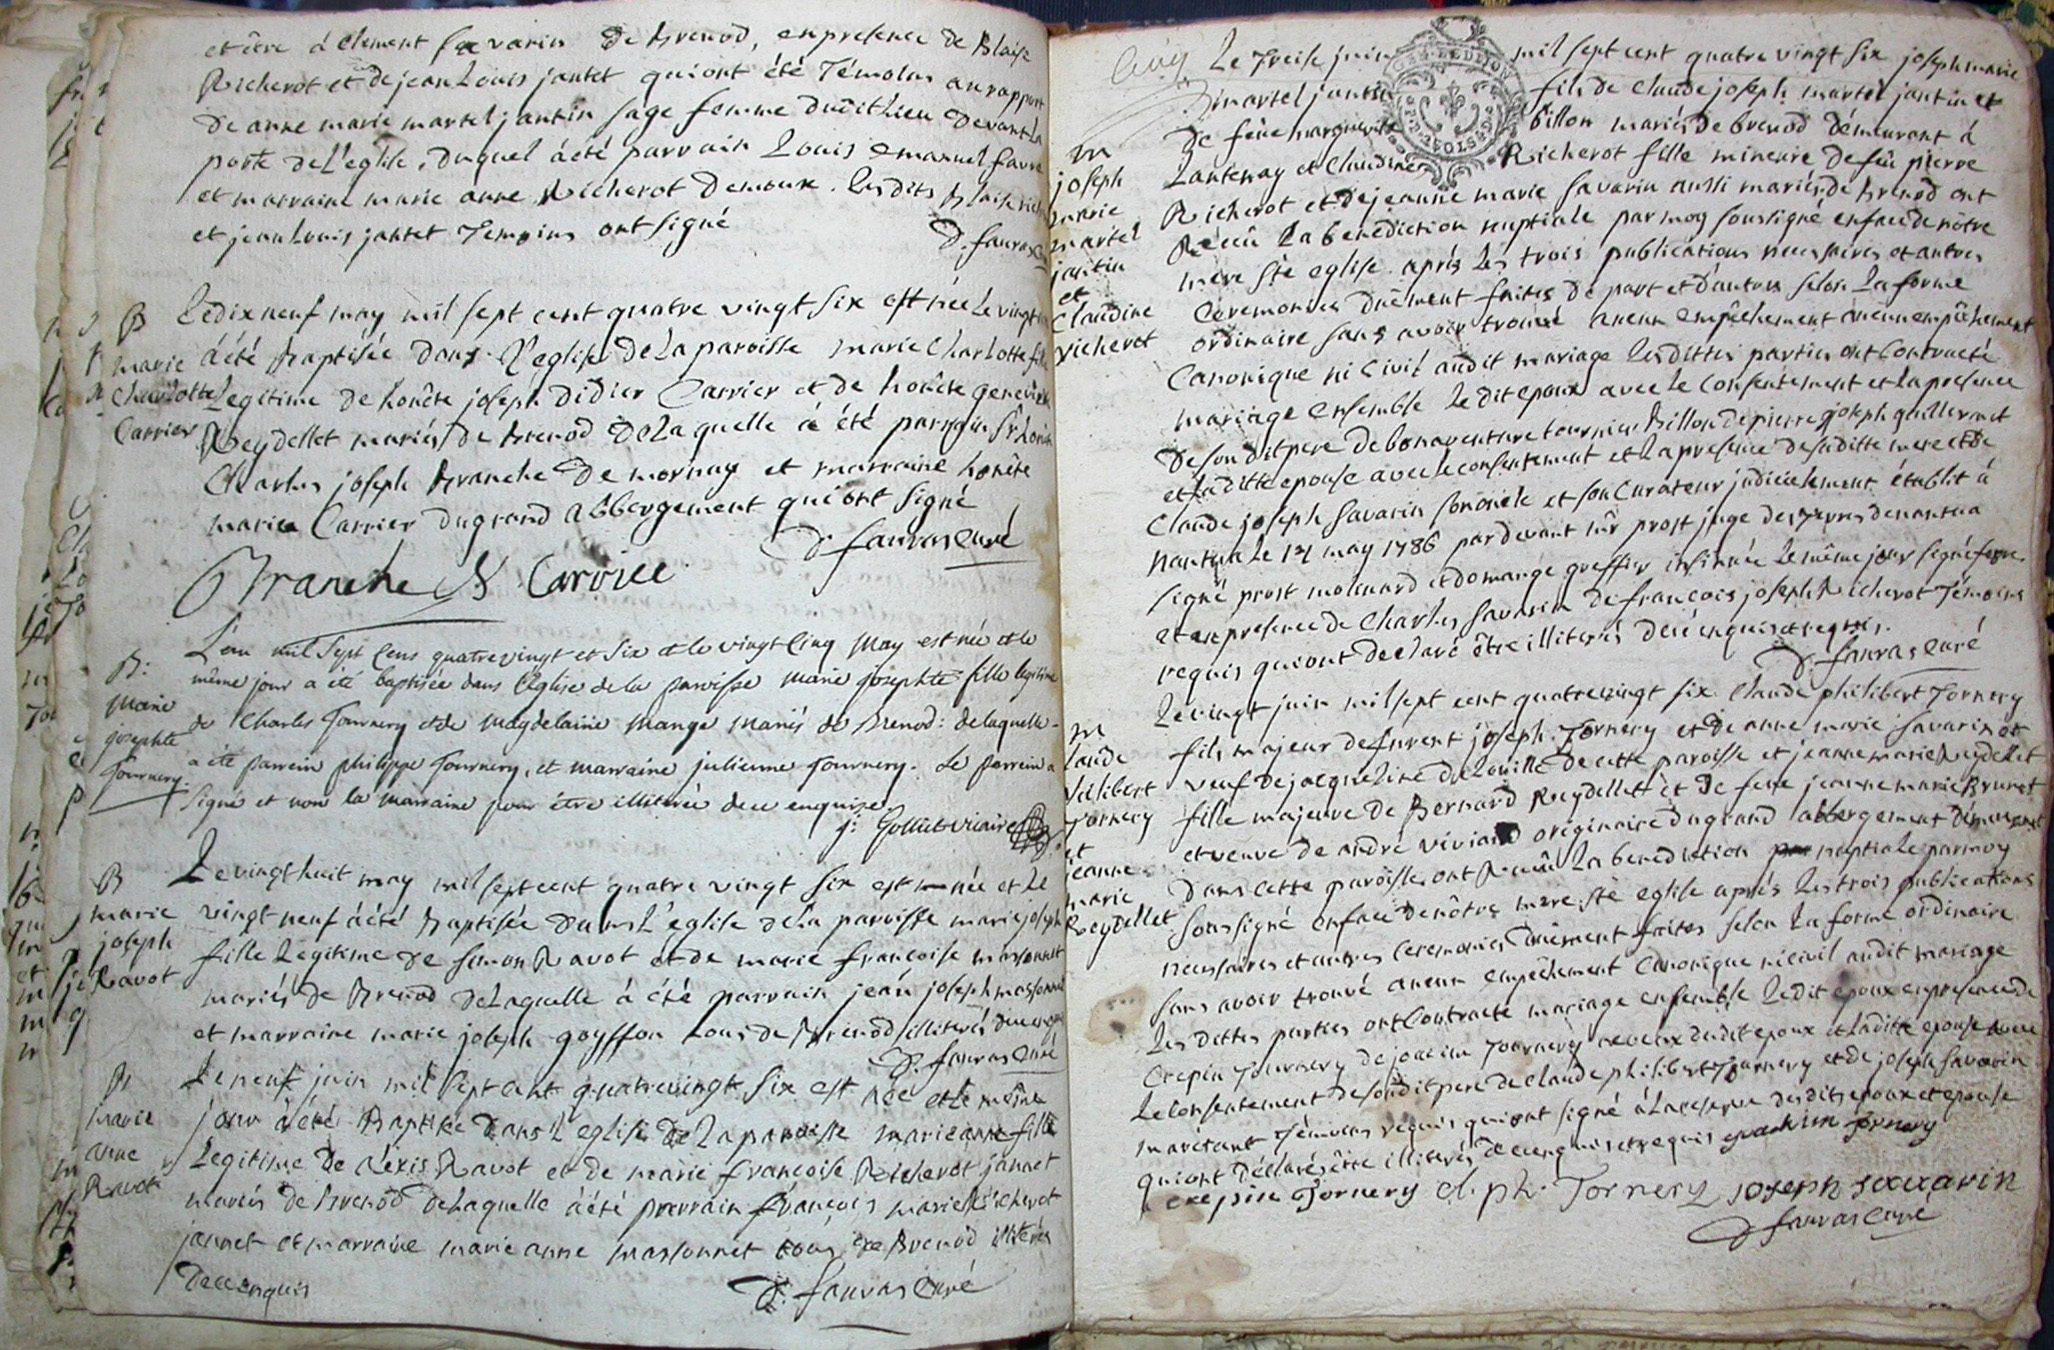 et ière à Clement Savarin de Brenod, en presence de Blaise
Richerot et de jean Louis jantet qui ont été Témoins au rapport
de anne marie martel jantin sage femme dudit lieu devant la
porte de L'eglise, duquel à été parrain Louis emanuel favre
et marraine marie anne Richerot demoux. Les dits Blaise
et jean Louis jantet Temoins ont signé
D. fauvas
B
marie
Charlotte
Carrier
Le dix neuf may mil sept cent quatre vingt six est née le vingt
à été Baptisée dans L'eglise de la paroisse marie Charlotte
Legitime de honête joseph didier Carrier et de honête genevieve
Reydellet mariés de Brenod de Laquelle à été parrain Sr
Charles joseph Branche de mornay et marraine honête
marie Carrier du grand abbergement qui ont signé
D. fauvas curé
Branche Carrier
B:
Marie
josephte
Tournery
L'an mil sept Cens quatrevingt et six et le vingt Cinq May est née et le
même jour a été baptisée dans l'Eglise de la paroisse Marie josephte fille legitime
de Charles Tournery et de Magdelaine Mange Mariés de Brenod: de laquelle
a été parrein philippe Tournery, et marraine julienne Tournery. le parrein a
signé et non la marraine pour être illiterée de ce enquise.
j: Gollut viaire
B
marie
joseph
Ravot
Le vingt huit may mil sept cent quatre vingt six est née et le
vingt neuf à été Baptisée dans L'eglise de la paroisse marie joseph
fille Legitime de simon Ravot et de marie françoise massonnet
mariés de Brenod de Laquelle à été parrain jean joseph massonnet
et marraine marie joseph goyffon tous de Brenod illiterés de ce enquis
D. fauvas curé
B
marie
anne
Ravot
Le neuf juin mil sept cent quatrevingt six est née et le même
jour à été Baptisée dans L'eglise de La paroisse marie anne fille
Legitime de Alexis Ravot et de marie françoise Richerot jannet
mariés de Brenod de Laquelle à été parrain françois marie Richerot
jannet et marraine marie anne massonnet tous de Brenod illiterés
de ce enquis
D. fauvas curé
m
joseph
marie
martel
jantin
et
Claudine
richerot
Le Treise juin mil sept cent quatre vingt six joseph marie
martel jantin fils de Claude joseph martel jantin et
de feüe marguerite billon mariés de brenod demeurant à
Lantenay et Claudine Richerot fille mineure de feu pierre
Richerot et de jeanne marie Savarin aussi mariés de Brenod ont
Réceû la benediction nuptiale par moy soussigné en face de nôtre
mere Ste eglise après les trois publications necessaires et autres
Ceremonies duëment faites de part et d'autres selon la forme
ordinaire sans avoir trouvé aucun empêchement aucun empêchement
Canonique ni civil audit mariage Lesdittes parties ont Contracté
mariage ensemble le dit epoux avec le Consentement et la presence
de son dit pere de bonaventure tournier Billon de pierre joseph guillermet
et laditte epouse avec le consentement et la presence de saditte mere et de
Claude joseph Savarin son oncle et son Curateur judicielement établit à
Nantua le 12 may 1786 par devant mr prost juge des terres de nantua
signé prost molinard et domange greffier insinuée le même jour signé favre
et en presence de Charles Savarin de françois joseph Richerot Témoins
requis qui ont declaré être illiterés de ce enquis et requis.
D. fauvas curé
m
Claude
philibert
Tornery
et
jeanne
marie
Reydellet
Le vingt juin mil sept cent quatrevingt six Claude philibert Tornery
fils majeur de furent joseph Tornery et de anne marie Savarin et
veuf de jacqueline delouille de cette paroisse et jeanne marie Reydellet
fille majeure de Bernard Reydellet et de feue jeanne marie Brunet
et veuve de andré viviand originaire du grand abbergement demeurant
dans cette paroisse ont Receû La benediction nuptiale par moy
soussigné en face de nôtre mere Ste eglise après les trois publications
necessaires et autres Ceremonies duëment faites selon La forme ordinaire
sans avoir trouvé aucun empêchement Canonique ni civil audit mariage
Les dittes parties ont Contracté mariage ensemble Ledit epoux en presence de
Crepin Tournery de joacim Tournery neveux dudit epoux et laditte epouse avec
Le Consentement de son dit pere de Claude philibert Tournery et de joseph Savarin
marêtant Témoins requis qui ont signé à La reserve desdits epoux et epouse
qui ont déclarés être illiterés de ce enquis et requis joachim Tornery
crepin Tornery cl. ph. Tornery joseph savarin
D fauvas curé